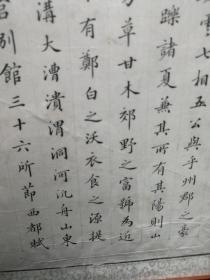 雲七相五公與乎州郡之豪
躒諸夏兼其所有其陽則山
草甘木郊野之富號為近
有鄭白之沃衣食之源提
溝大漕潰渭洞河汎舟山東
別館三十六所節西都賦